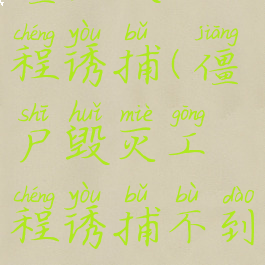 chéng yòu bǔ Jiāng
程诱捕(僵
shī huǐ miè gōng
尸毁灭工
chéng yòu bǔ bù dào
程诱捕不到